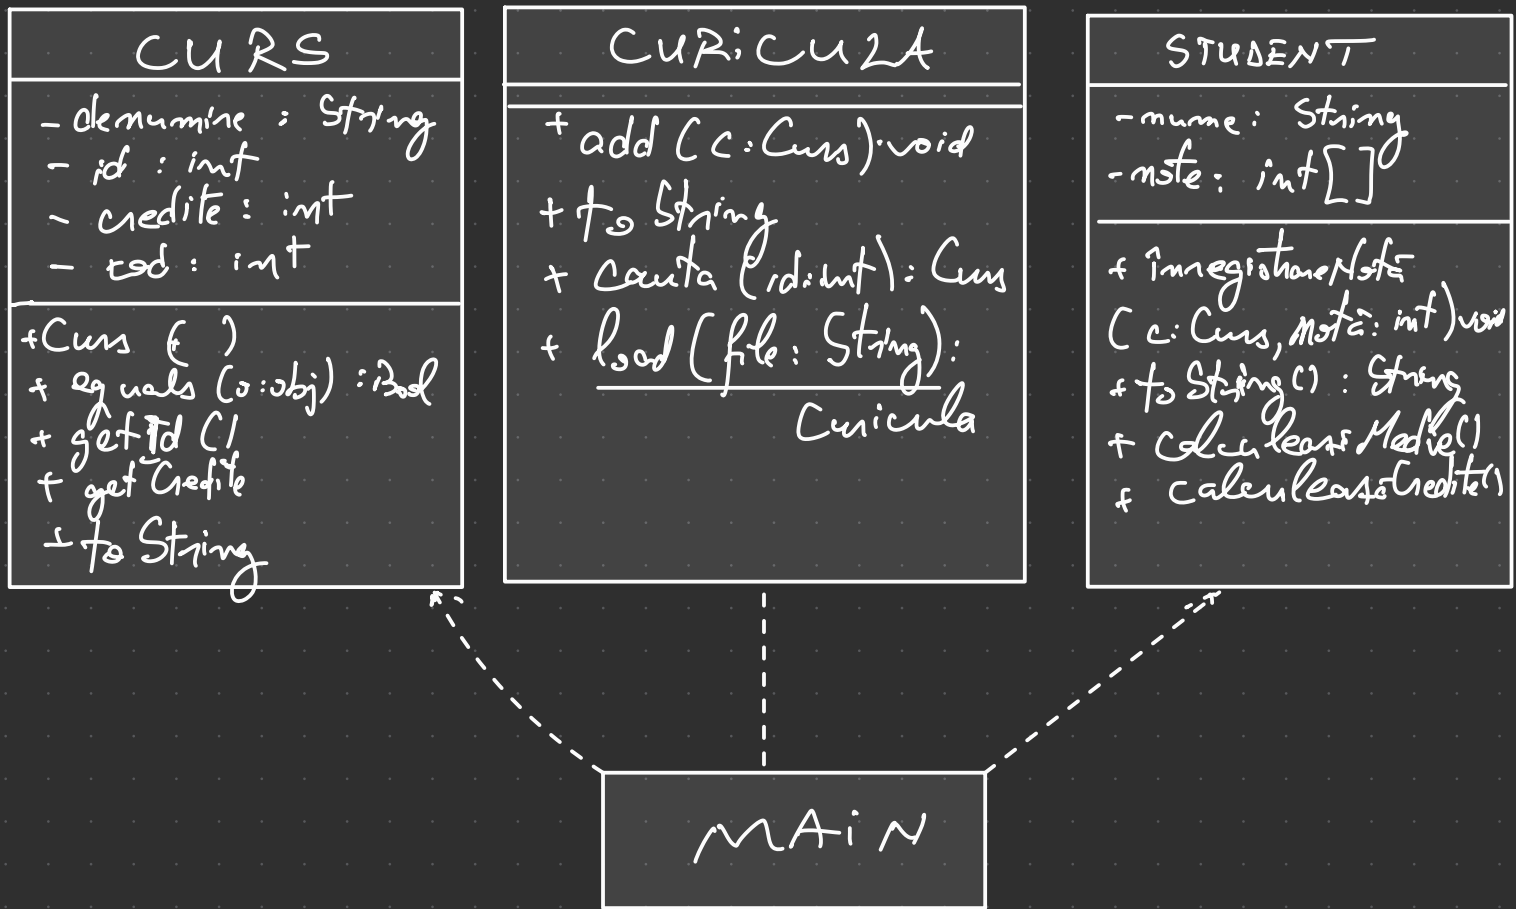 CURS
- denumire : String
- id : int
- credite : int
- cod : int
+ Curs ( )
+ equals (o:obj) : Bool
+ getId ()
+ get Credite
+ to String
CURiCULA
+ add (c:Curs):void
+ to String
+ cauta (id:int) : Curs
+ load (file: String):
Curicula
STUDENT
- nume: String
- note: int[]
+ înregistrareNotă
(c:Curs, notă: int) void
+ to String() : String
+ calculeazăMedie()
+ calculeazăCredite()
MAiN